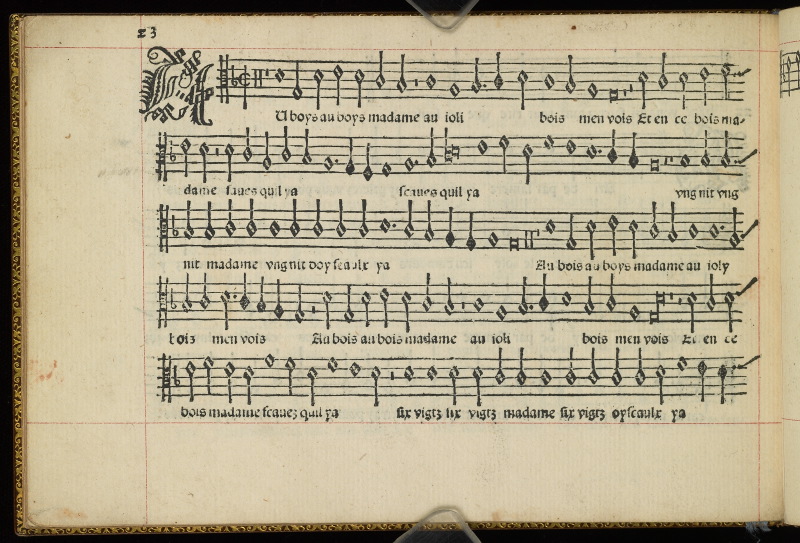 23
AU boys au boys madame au ioli bois men vois Et en ce bois ma-
dame scaues quil ya scaues quil ya vng nit vng
nit madame vng nit doyseaulx ya Au bois au boys madame au ioly
bois men vois Au bois au bois madame au ioli bois men vois Et en ce
bois madame scauez quil ya six vigtz six vigtz madame six vigtz oyseaulx ya